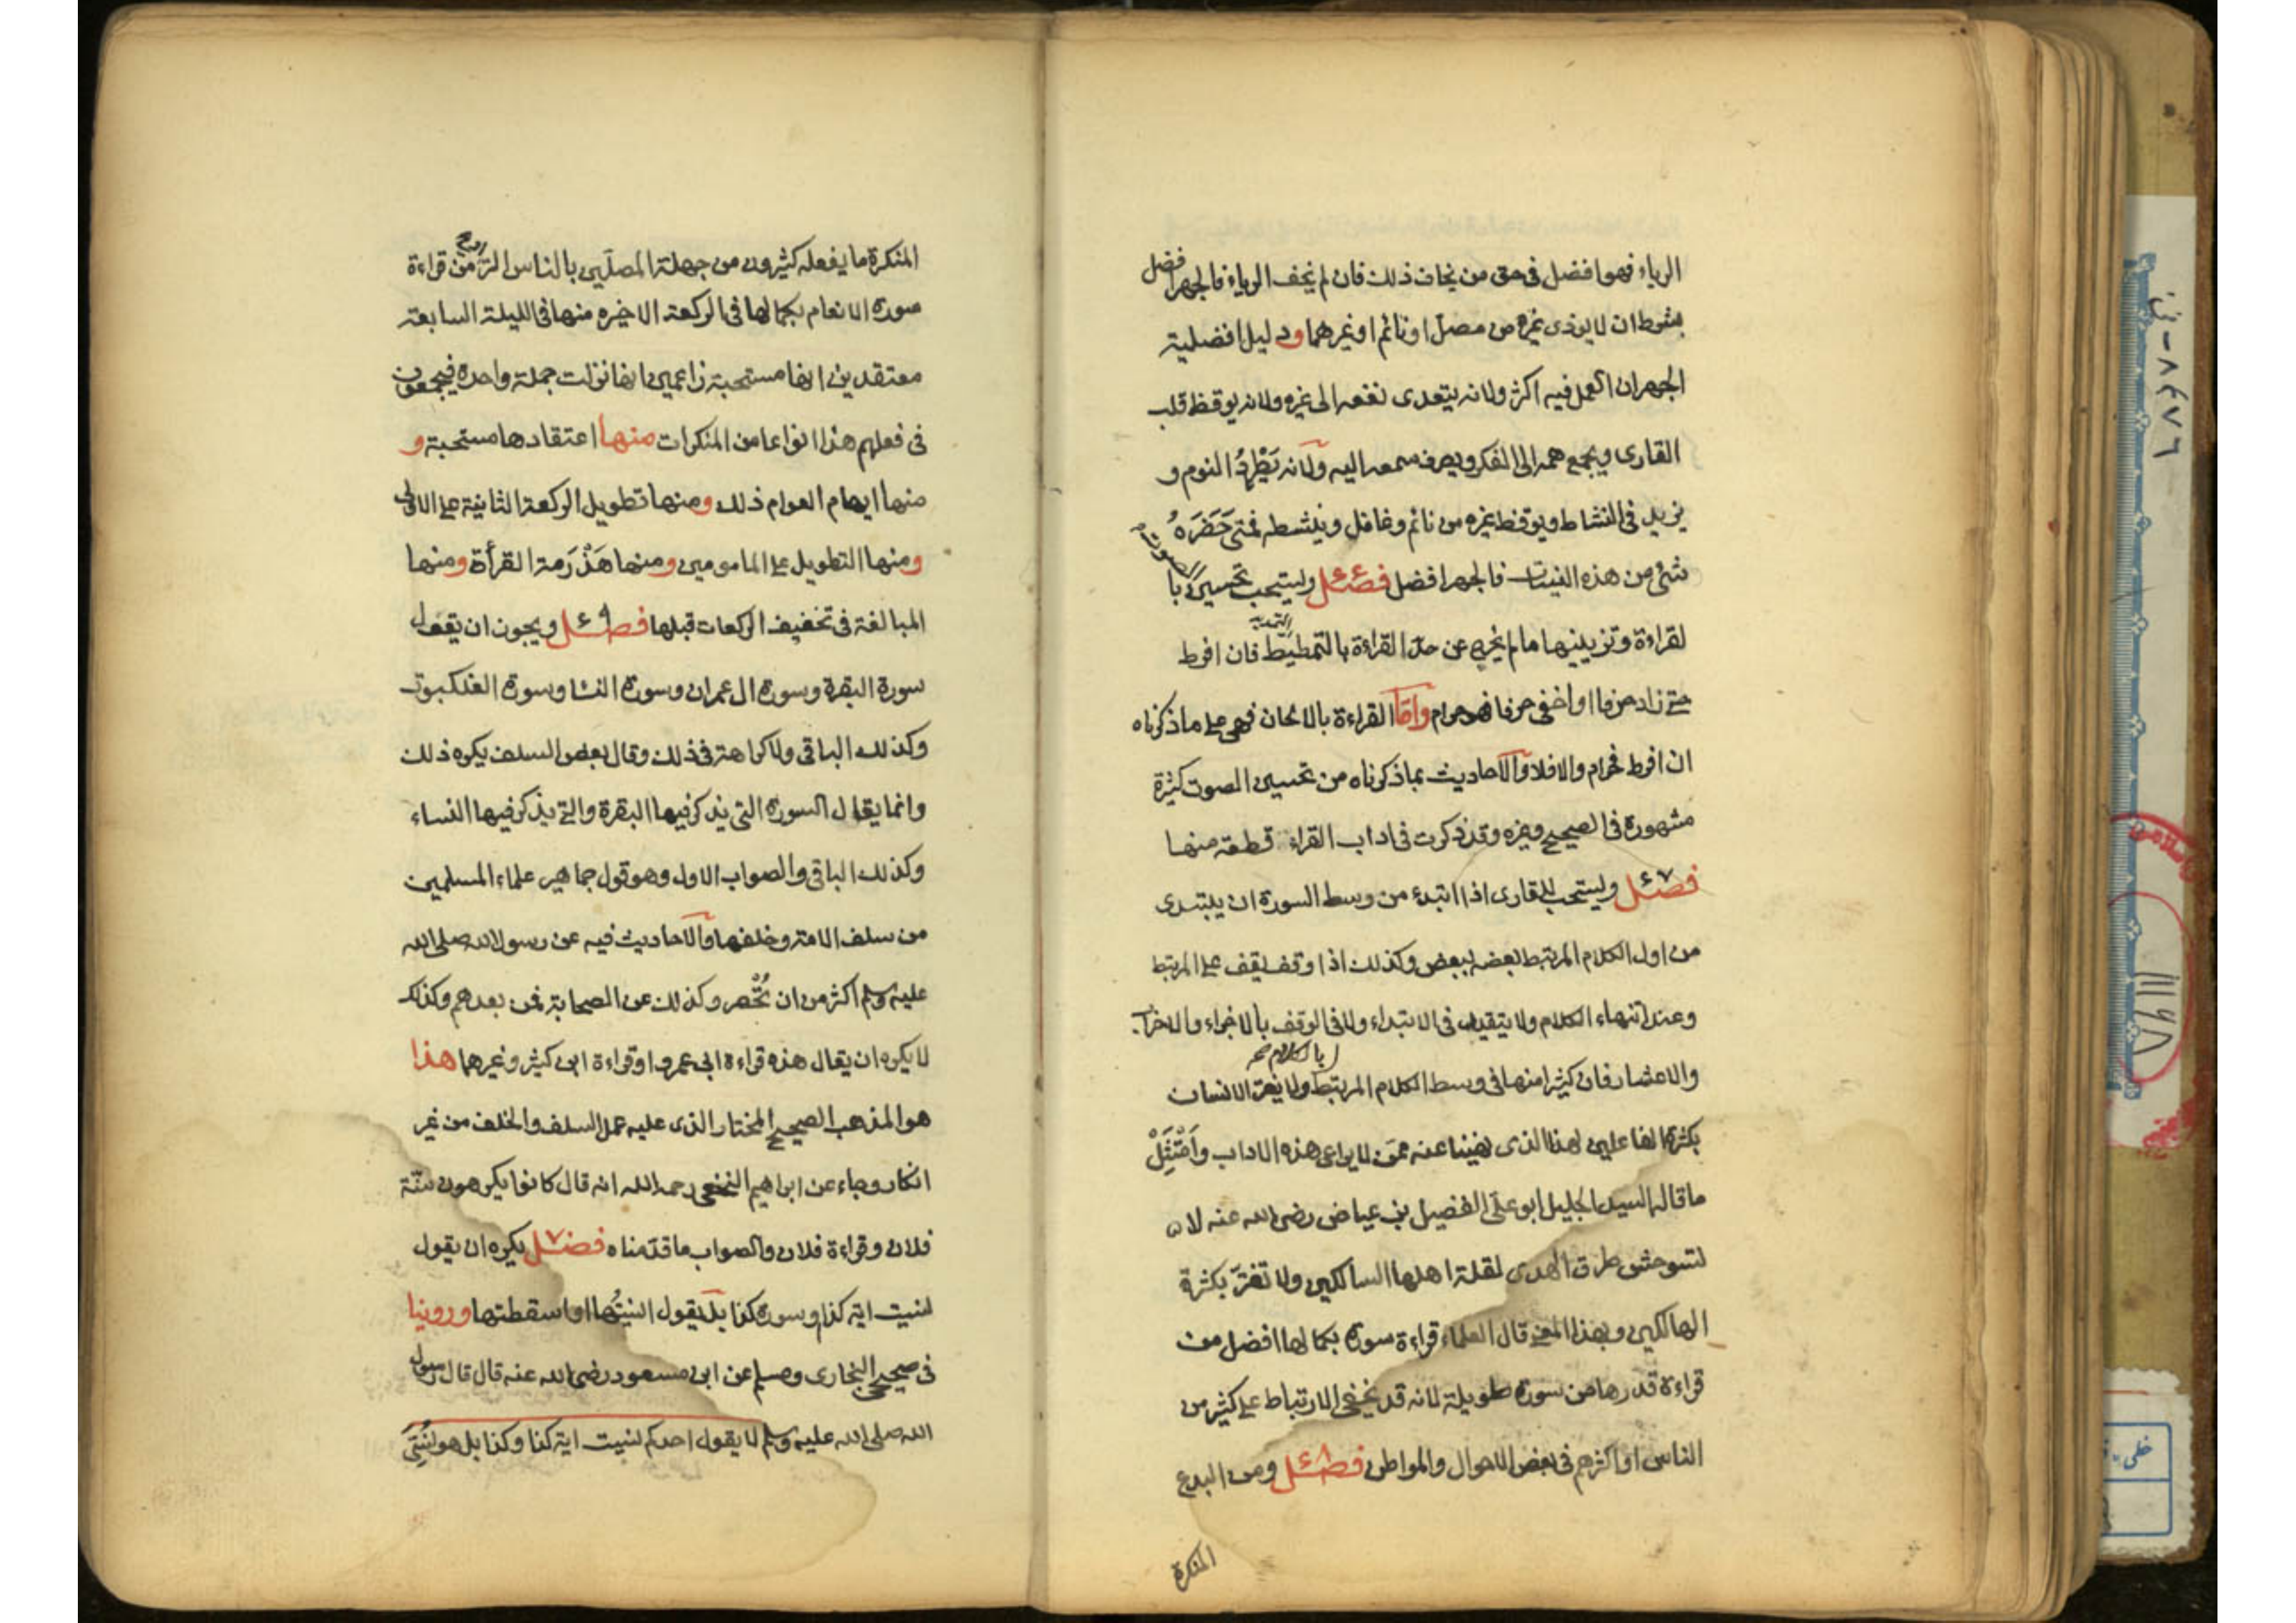 الرياء فهو افضل فى حق من يخاف ذلك فان لم يخف الرياء فالجهر افضل
بشرط ان لا يوذى غيره من مصل او نائم او غيرهما ودليل افضلية
الجهر ان العمل فيه اكثر ولانه يتعدى نفعه الى غيره ولانه يوقظ قلب
القارى ويجمع همه الى الفكر ويصرف سمعه اليه ولانه يَطْرِدُ النوم و
يزيد فى النشاط ويوقظ غيره من نائم وغافل وينشطه فمتى حَضَرَهُ
شئ من هذه النيات فالجهر افضل فصل ٤٦ ويستحب تحسين الصوت با
لقراءة وتزيينها ما لم يخرج عن حد القراءة بالتمطيط فان افرط
حتى زاد حرفا او اخفى حرفا فهو حرام واما القراءة بالالحان فهى على ما ذكرناه
ان افرط فحرام والا فلا والاحاديث بما ذكرناه من تحسين الصوت كثيرة
مشهورة فى الصحيح وغيره وقد ذكرت فى اداب القراء قطعة منها
فصل ٤٧ ويستحب للقارى اذا ابتدء من وسط السورة ان يبتدى
من اول الكلام المرتبط بعضه ببعض وكذلك اذا وقف يقف على المرتبط
وعند انتهاء الكلام ولا يتقيد فى الابتداء ولا فى الوقف بالاجزاء والاحزاب
والاعشار فان كثيرا منها فى وسط الكلام المرتبط بالكلام صح ولا يغتر الانسان
بكثرة الفاعلين لهذا الذى نهينا عنه ممن لا يراعى هذه الاداب وَامْتَثِلْ
ما قاله السيد الجليل ابو على الفضيل بن عياض رضى الله عنه لا
تستوحش طرق الهدى لقلة اهلها السالكين ولا تغتر بكثرة
الهالكين وبهذا المعنى قال العلماء قراءة سورة بكمالها افضل من
قراءة قدرها من سورة طويلة لانه قد يخفى الارتباط على كثير من
الناس او اكثرهم فى بعض الاحوال والمواطن فصل ٤٨ ومن البدع
المنكرة
المنكرة ما يفعله كثيرون من جهلة المصلين بالناس التراويح من قراءة
سورة الانعام بكمالها فى الركعة الاخيره منها فى الليلة السابعة
معتقدين انها مستحبة زاعمين انها نزلت جملة واحدة فيجمعون
فى فعلهم هذا انواعا من المنكرات منها اعتقادها مستحبة و
منها ايهام العوام ذلك ومنها تطويل الركعة الثانية على الاولى
ومنها التطويل على المامومين ومنها هَذْرَمة القرأة ومنها
المبالغة فى تخفيف الركعات قبلها فصل ٤٩ ويجوز ان يقول
سورة البقرة وسورة ال عمران وسورة النسا وسورة العنكبوت
وكذلك الباقى ولا كراهة فى ذلك وقال بعض السلف يكره ذلك
وانما يقال السورة التى يذكر فيها البقرة والتى يذكر فيها النساء
وكذلك الباقى والصواب الاول وهو قول جماهير علماء المسلمين
من سلف الامة وخلفها والاحاديث فيه عن رسول الله صلى الله
عليه وسلم اكثر من ان تُحْصر وكذلك عن الصحابة فمن بعدهم وكذلك
لا يكره ان يقال هذه قراءة ابى عمرو او قراءة ابن كثير وغيرهما هذا
هو المذهب الصحيح المختار الذى عليه عمل السلف والخلف من غير
انكار وجاء عن ابراهيم النخعى رحمه الله انه قال كانوا يكرهون سنّة
فلان وقراءة فلان والصواب ما قدّمناه فصل ٧ يكره ان يقول
نسيت اية كذا وسورة كذا بل يقول انسيتُها او اسقطتها وروينا
فى صحيح البخارى ومسلم عن ابن مسعود رضى الله عنه قال قال رسول
الله صلى الله عليه وسلم لا يقول احدكم نسيت اية كذا وكذا بل هو نُسِّىَ